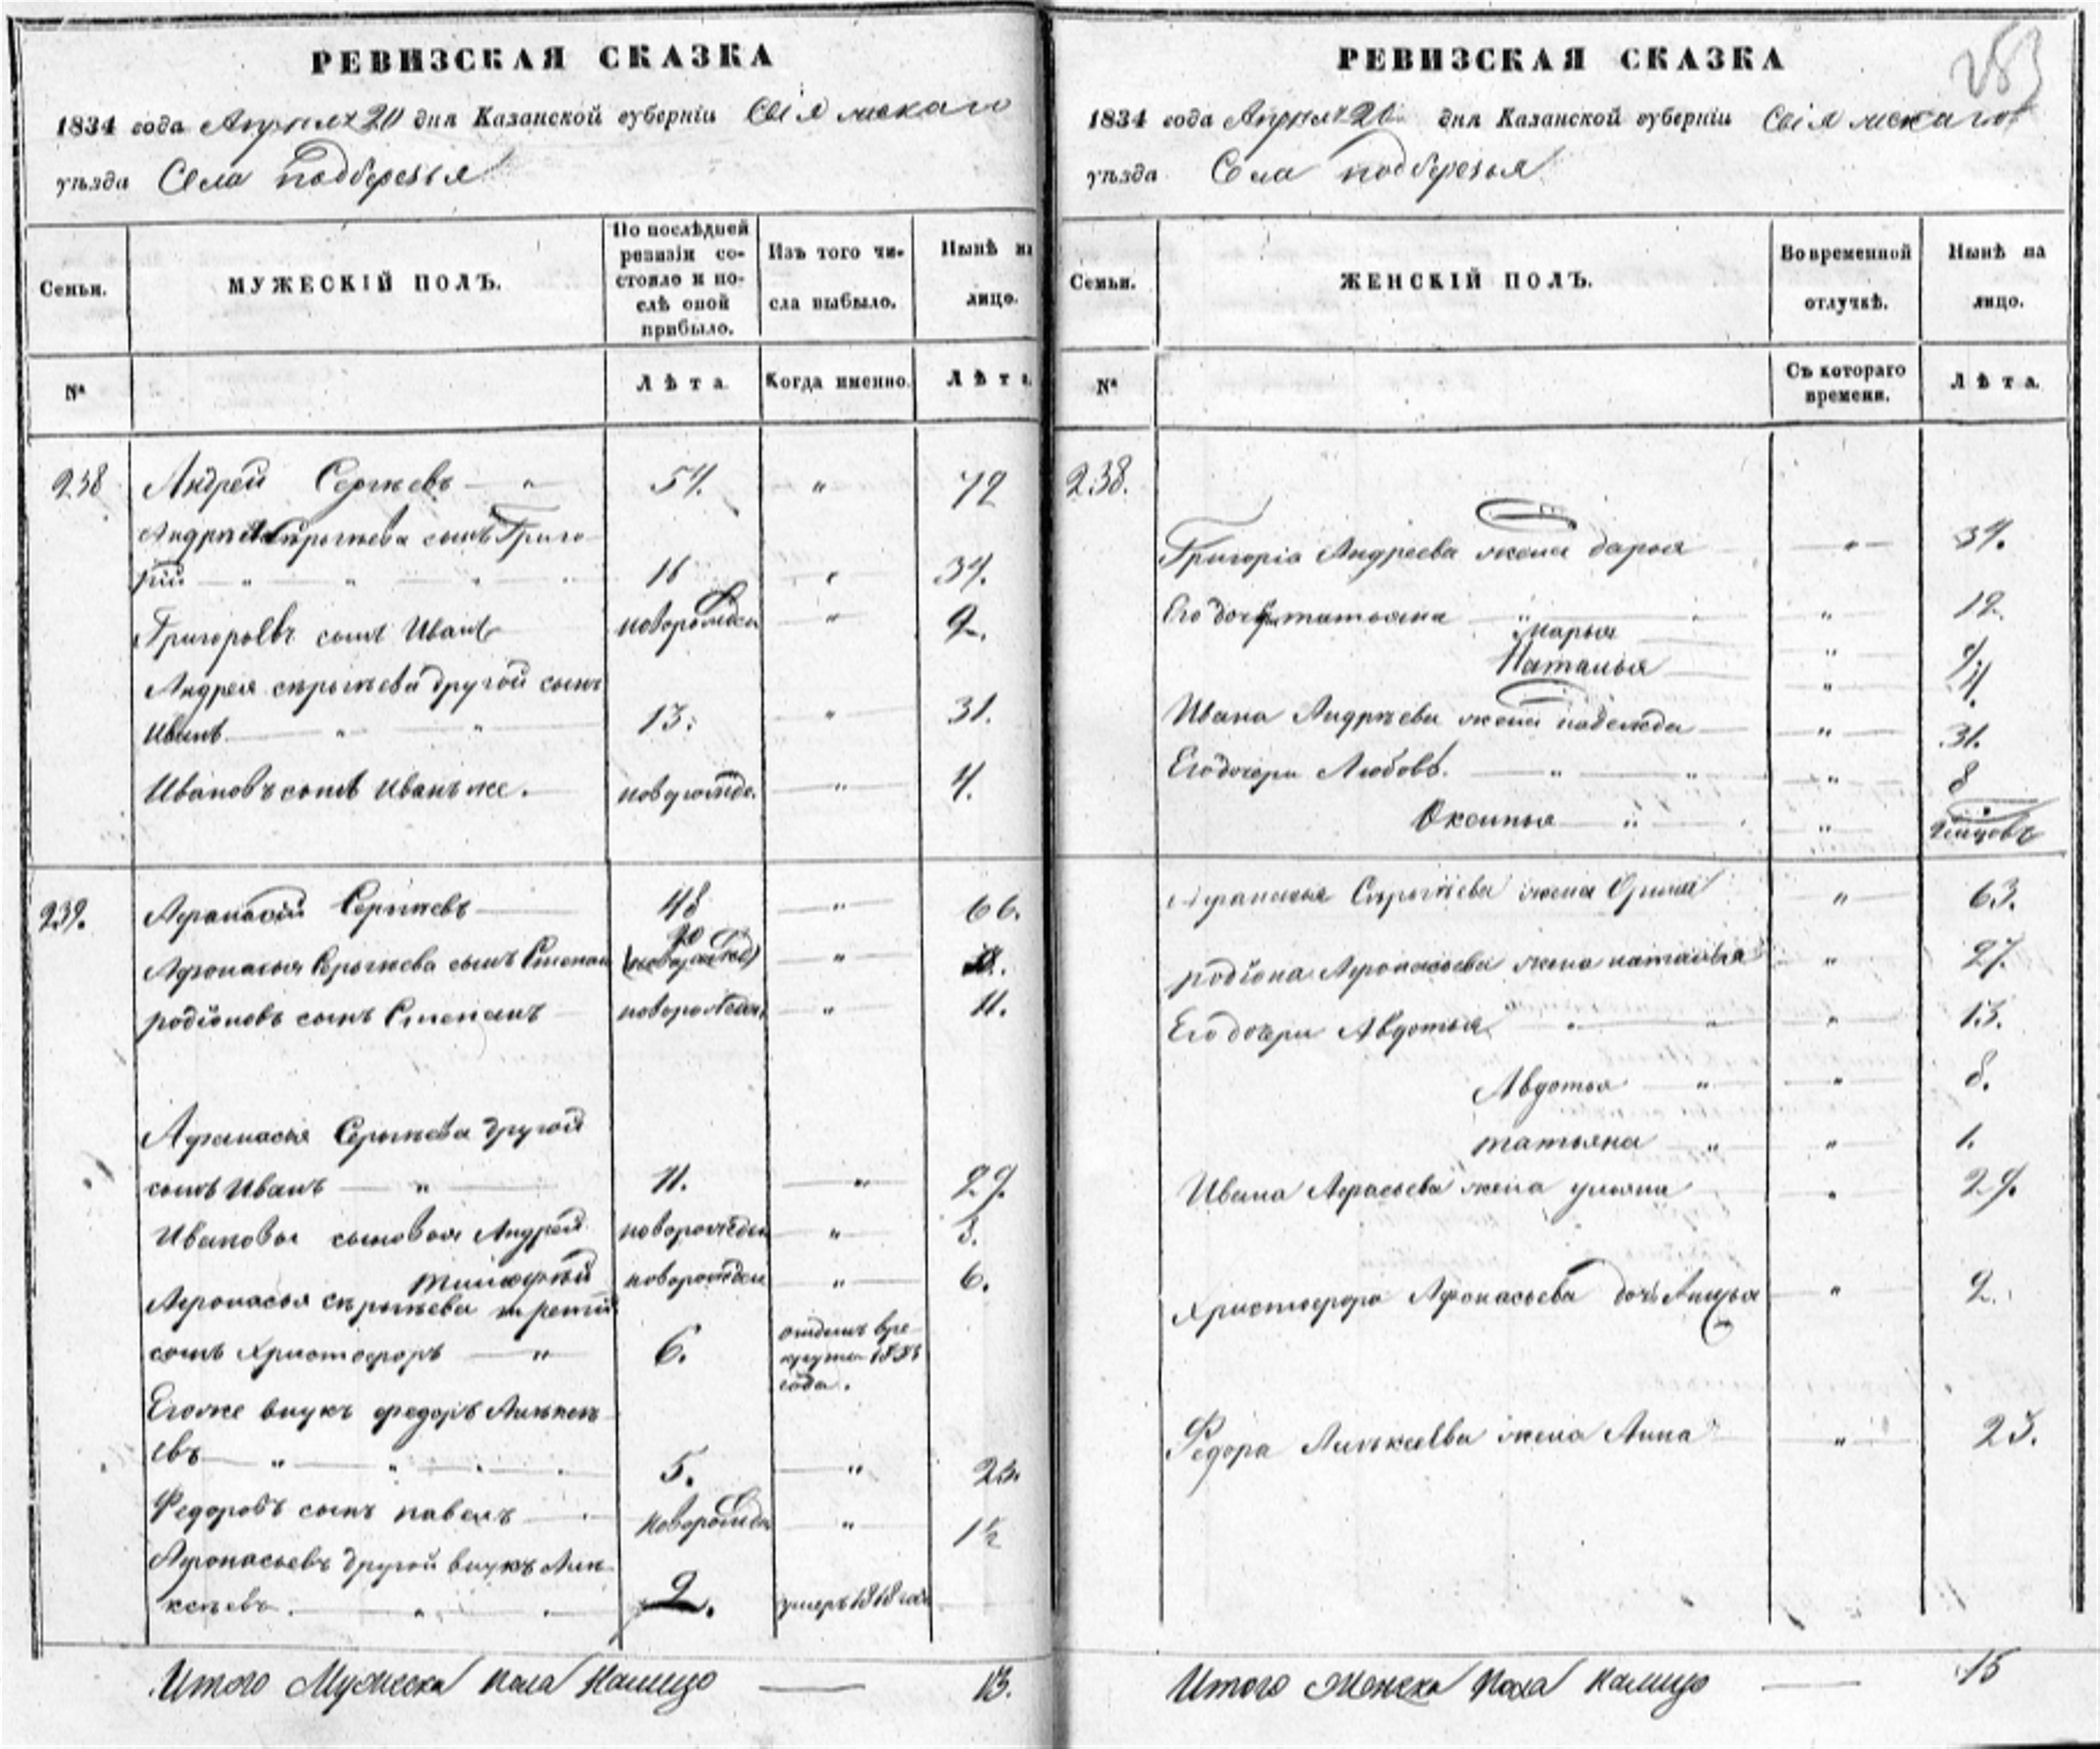 РЕВИЗСКАЯ СКАЗКА
1834 года Апреля 20 дня Казанской губерніи Свіяжскаго
уѣзда Села подберезья
Семьи.
МУЖЕСКІЙ ПОЛЪ.
По послѣдней ревизіи состояло и послѣ оной прибыло.
Изъ того числа выбыло.
Нынѣ на лицо.
№
Лѣта.
Когда именно.
Лѣта.
238 Андрей Сергѣевъ — " 54. " 72
Андрея Сергѣева сынъ Григо-
рій — " " " " 16 " 34.
Григорьевъ сынъ Иванъ новорожден " 9.
Андрея сергѣева другой сынъ
Иванъ — " " 13. " 31.
Ивановъ сынъ Иванъ же. новорожде. " 4.
239. Афанасій Сергѣевъ 48 " 66.
Афонасья Сергѣева сынъ Степан 20 "
родіоновъ сынъ Степанъ новорожден " 11.
Афанасья Сергѣева другой
сынъ Иванъ — " 11. " 29.
Ивановы сыновья Андрей новорожден " 3.
Тимофѣй новорожден " 6.
Афонасья сергѣева третій
сынъ Христофоръ — " 6. отданъ в ре-
круты года.
Его же внукъ федоръ Алексѣ-
евъ — " " " " 5. " 23.
Федоровъ сынъ павелъ новорожден " 1½
Афонасьевъ другой внукъ Але-
ксѣевъ. " " 2. умеръ 1818 года
Итого Мужеска пола налицо — 13.
РЕВИЗСКАЯ СКАЗКА
253
1834 года Апреля 20 дня Казанской губерніи Свіяжскаго
уѣзда Села подберезья
Семьи.
ЖЕНСКІЙ ПОЛЪ.
Во временной отлучкѣ.
Нынѣ на лицо.
№
Съ котораго времени.
Лѣта.
238.
Григорія Андреева жена дарья " 34.
Его дочери татьяна " " " 12.
Марья "
Наталья "
Ивана Андрѣева жена надежда " 31.
Его дочери Любовь. " " " 8
Оксинья " "
Афанасья Сергѣева жена Орина " 63.
родіона Афонасьева жена наталья " 27.
Его дочери Авдотья " " " 13.
Авдотья " " 8.
татьяна " " 1.
Ивана Афасьева жена ульяна " 29.
Христофора Афонасьева дочь " 2.
Федора Алексеева жена Анна " 23.
Итого Женска пола налицо — 15